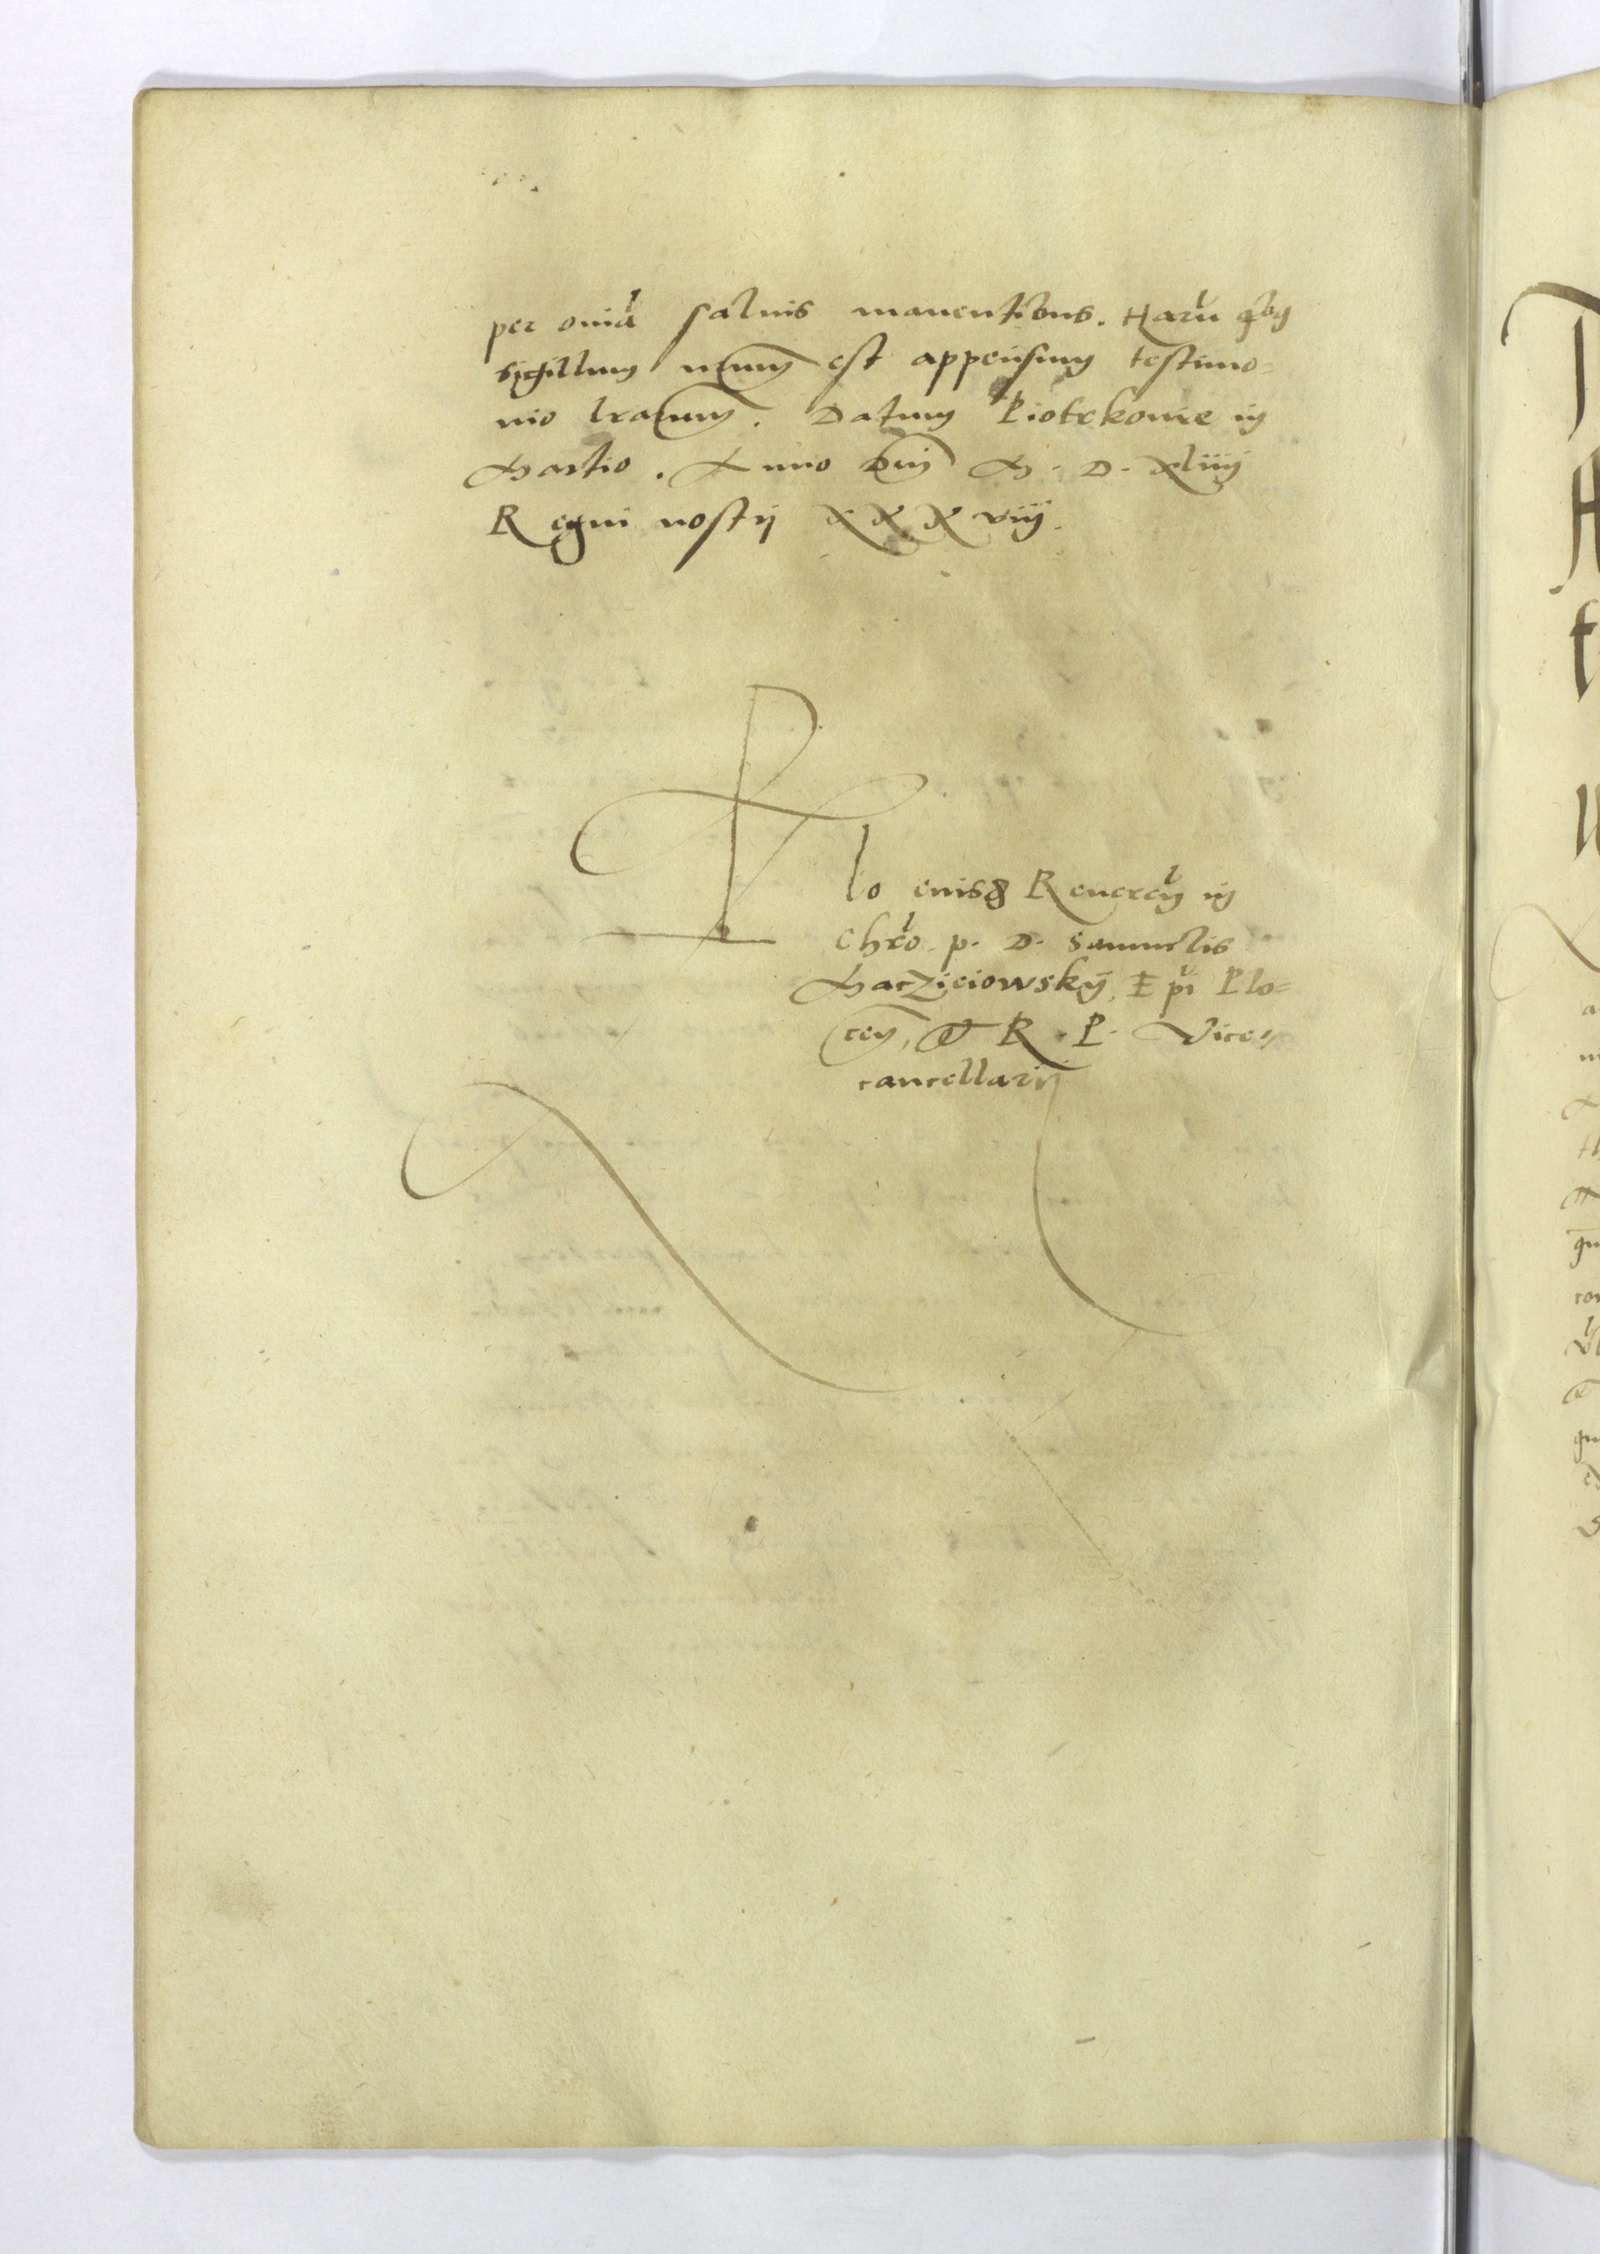 per omia salvis manentibus. Haru qbq
sigillum nrum est appensum testimo=
nio lrarum. Datum Piotrkovie in
Martio. Anno Dni M. D. xliiij
Regni nostri XXXviij.
Rlo eiusd Reveren in
Chro p. D. Samuelis
Maczieiowskÿ, Epi Plo=
cen, & R. P. Vice=
cancellarij